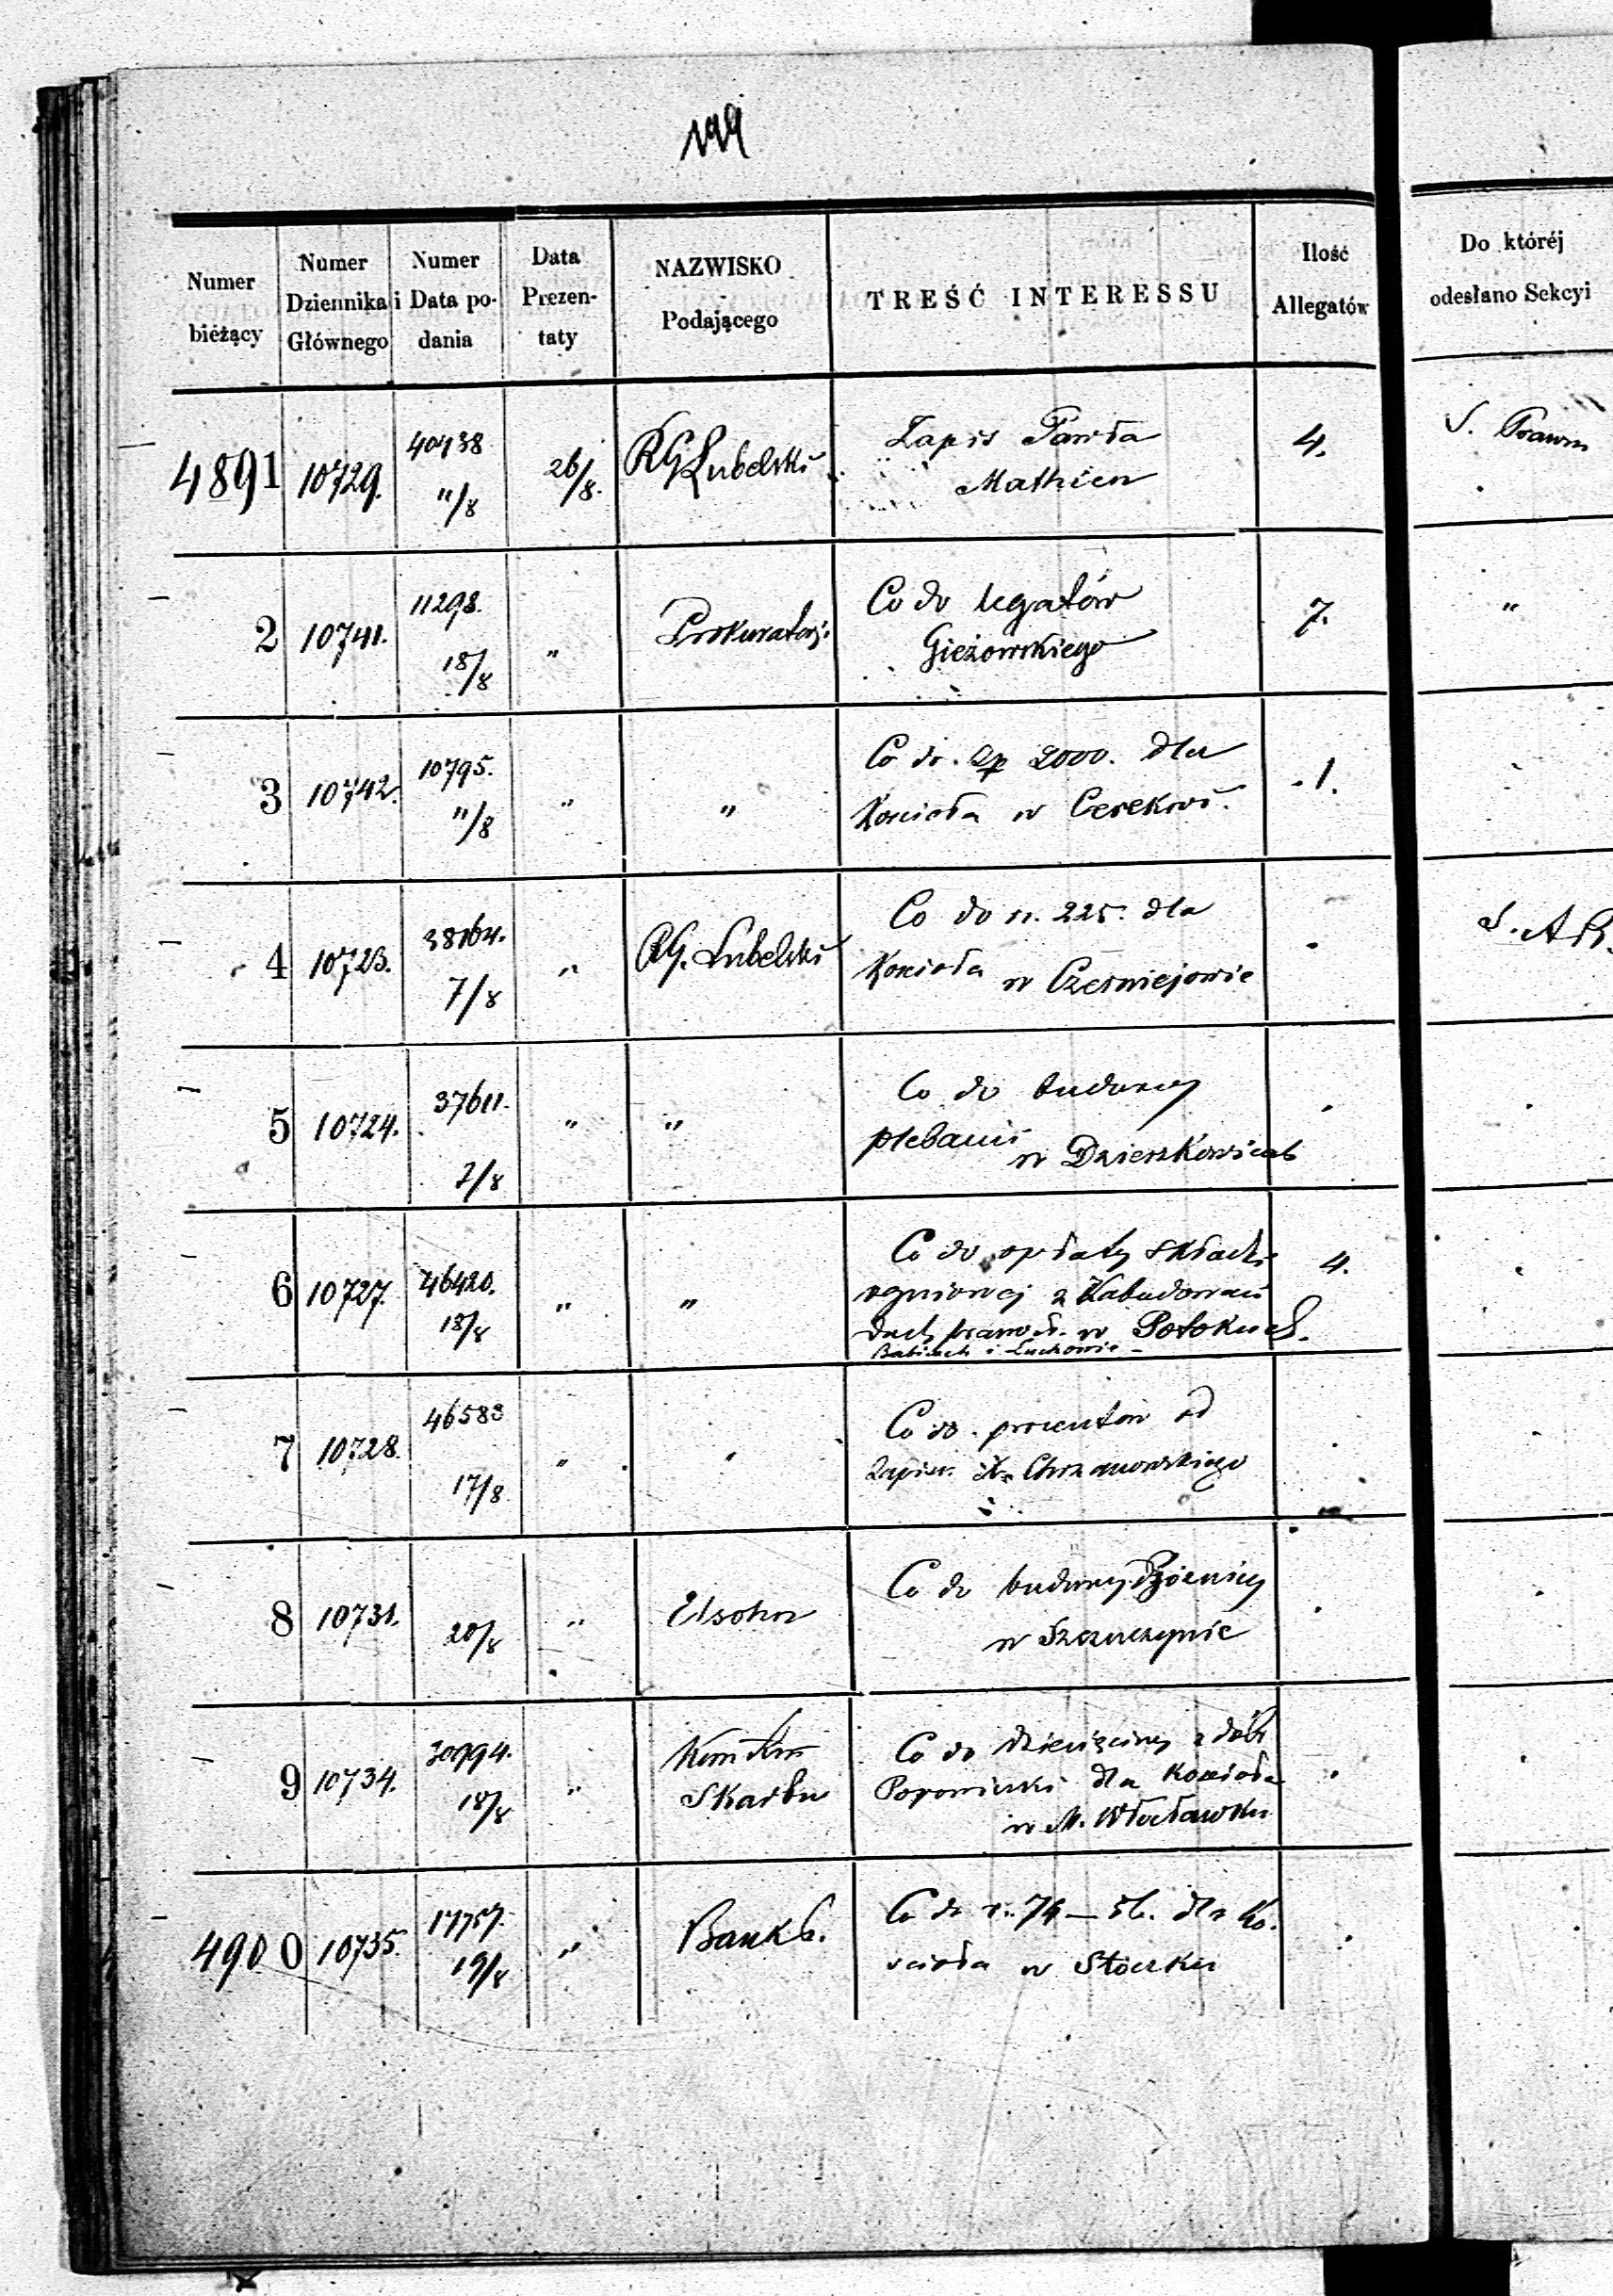 Numer bieżący | Numer Dziennika Głównego | Numer i Data podania | Data Prezentaty | NAZWISKO Podającego | TREŚĆ INTERESSU | Ilość Allegatów | Do któréj odesłano Sekcyi
4891 | 10729. | 40438 "/8 | 26/8. | RG Lubelski | Zapis Pawła
Mathieu | 4. | S. Prawn
2 | 10741. | 11298. 18/8 | " | Prokuratorj. | Co do legatów
Gieżowskiego | 7. | "
3 | 10742. | 10795. "/8 | " | " | Co do. Zp 2000. dla
Kościoła w Cerekwi. | 1.
4 | 10723. | 7/8 | " | RG. Lubelski | Co do r. 225. dla
Kościoła w Cześniejowie | . | S. A
5 | 10724. | 37611. 7/8 | " | " | Co do budowy
plebanii w Dzierzkowicach | .
6 | 10727. | 46420. 18/8 | " | " | Co do opłaty składki
ogniowej z Zabudowań
duch. w Potoku
Babicach i Łuchowie | 4.
7 | 10728. | 46583 17/8 | " | " | Co do. procentów od
zapisu X. Chrzanowskiego | .
8 | 10731. | 20/8 | " | Elsohn | Co do budowy
w Szczuczynie | .
9 | 10734. | 30794. 18/8 | " | Skarbu | Co do dziesięciny z dóbr
dla Kościoła
w M. Włocławku | .
4900 | 10735. | 19/8 | " | Bank P. | Co do r. 74 – dla Ko.
scioła w Stoczku | .